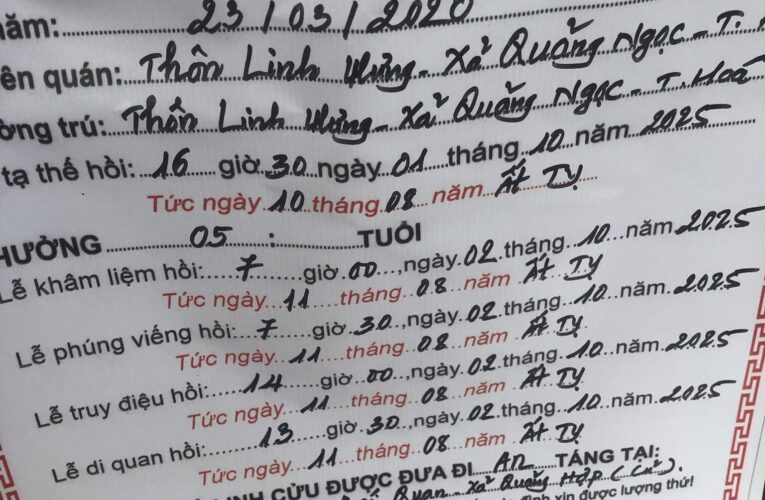 năm: 23 / 03 / 2020
ên quán: Thôn Linh Hưng - Xã Quảng Ngọc - T.
ờng trú: Thôn Linh Hưng - Xã Quảng Ngọc - T. Hoá
tạ thế hồi: 16 giờ 30 ngày 01 tháng 10 năm 2025
Tức ngày 10 tháng 08 năm Ất Tỵ
HƯỞNG 05 : TUỔI
Lễ khâm liệm hồi: 7 giờ 00, ngày 02 tháng 10 năm 2025
Tức ngày 11 tháng 08 năm Ất Tỵ
Lễ phúng viếng hồi: 7 giờ 30, ngày 02 tháng 10 năm 2025
Tức ngày 11 tháng 08 năm Ất Tỵ
Lễ truy điệu hồi: 14 giờ 00, ngày 02 tháng 10 năm 2025
Tức ngày 11 tháng 08 năm Ất Tỵ
Lễ di quan hồi: 13 giờ 30, ngày 02 tháng 10 năm 2025
Tức ngày 11 tháng 08 năm Ất Tỵ
INH CỬU ĐƯỢC ĐƯA ĐI AN TÁNG TẠI:
Quan - Xã Quảng Hợp (Cũ).
đình xin được lượng thứ!